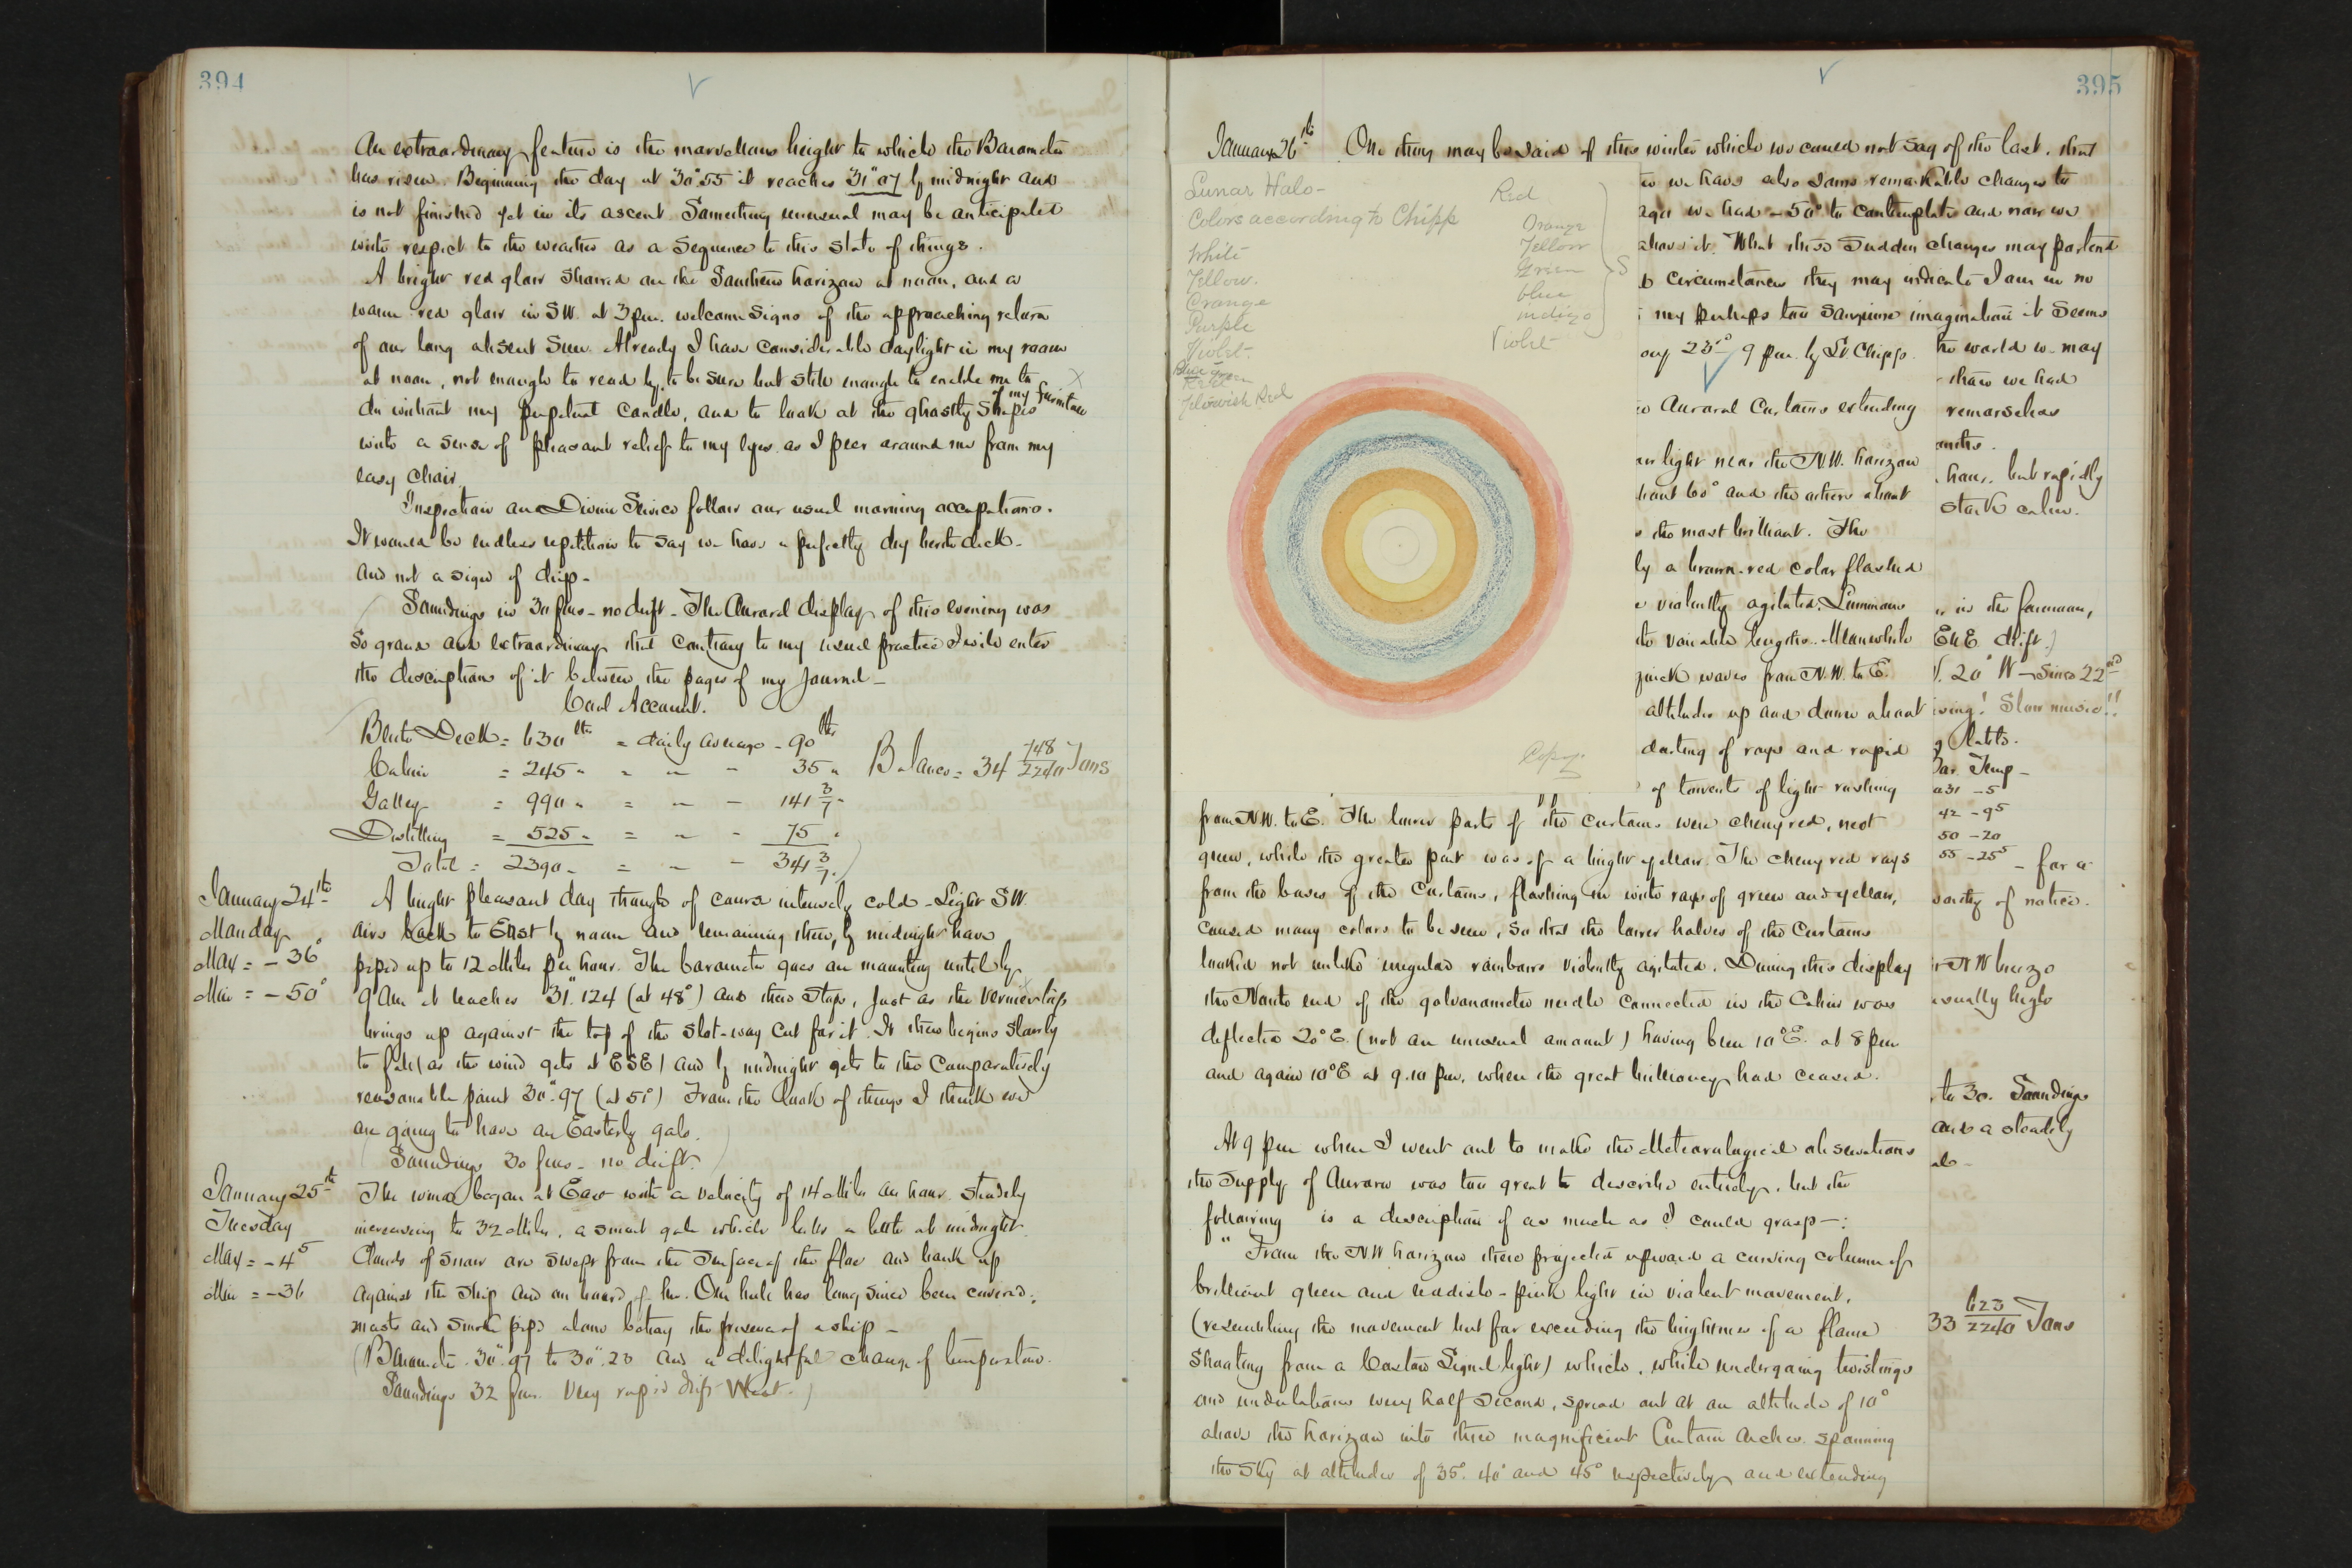 394
An extraordinary feature is the marvellous height to which the Barometer
has risen. Beginning the day at 30".55 it reaches 31".07 by midnight and
is not finished yet in its ascent. Something unusual may be anticipated
with respect to the weather as a sequence to this state of things.
A bright red glow showed on the Southern horizon at noon, and a
warm red glow in SW. at 3 pm. welcome signs of the approaching return
of our long absent Sun. Already I have considerable daylight in my room
at noon, not enough to read by, to be sure but still enough to enable me to
do without my perpetual candle, and to look at the ghastly shapes of my furniture
with a sense of pleasant relief to my eyes as I peer around me from my
easy chair.
Inspection and Divine Service follow our usual morning occupations.
It would be endless repetition to say we have a perfectly dry berth deck
and not a sign of drip -
Soundings in 30 fms - no drift - The Auroral display of this evening was
so grand and extraordinary that contrary to my usual practice I will enter
the description of it between the pages of my journal -
Coal Account.
Berth Deck = 630 lbs = daily average - 90 lbs
Cabin = 245 " = " - 35 " Balance = 34 748/2240 Tons
Galley = 990 " = " - 141 3/7 "
Distilling = 525 " = " - 75 "
Total = 2390 " = " - 341 3/7 "
January 24th A bright pleasant day though of course intensely cold - Light SW.
Monday airs back to East by noon and remaining there, by midnight have
Max = -36° piped up to 12 Miles per hour. The barometer goes on mounting until by
Min = -50° 9 Am it reaches 31".124 (at 48°) and there stops, just as the vernier top
brings up against the top of the slot-way cut for it. It then begins slowly
to fall (as the wind gets at ESE) and by midnight gets to the comparatively
reasonable point 30".97 (at 51°) From the look of things I think we
are going to have an Easterly gale.
Soundings 30 fms - no drift.
January 25th The wind began at East with a velocity of 14 Miles an hour steadily
Tuesday increasing to 32 Miles, a smart gale which lulls a little at midnight.
Max = -4.5 Clouds of snow are swept from the surface of the floe and bank up
Min = -36 against the ship and on board of her. Our hull has long since been covered;
masts and smoke pipe alone betray the presence of a ship -
(Barometer 30".97 to 30".23 and a delightful change of temperature.
Soundings 32 fms. Very rapid drift West.)
395
January 26th One thing may be said of this winter which we could not say of the last, that
Lunar Halo -
Colors according to Chipp
White
Yellow.
Orange
Purple
Violet.
Blue green
Yellowish Red
Red
Orange
Yellow
Green
blue
indigo
Violet
S
Copy.
we have also some remarkable changes to
ago we had -50° to contemplate and now we
above it. What these sudden changes may portend
circumstances they may indicate I am in no
my perhaps too sanguine imagination it seems
23° 9 pm. by Lt. Chipp.
Auroral Curtains extending
light near the N.W. horizon
60° and the others about
the most brilliant. The
by a brown-red color flashed
violently agitated. Luminous
variable lengths. Meanwhile
quick waves from N.W. to E.
altitudes up and down about
darting of rays and rapid
of torrents of light rushing
from N.W. to E. The lower parts of the curtains were cherry red, next
green, while the greater part was of a bright yellow. The cherry red rays
from the bases of the Curtains, flashing in with rays of green and yellow,
caused many colors to be seen, so that the lower halves of the Curtains
looked not unlike irregular rainbows violently agitated. During this display
the North end of the galvanometer needle connected in the Cabin was
deflected 20° E. (not an unusual amount) having been 10° E. at 8 pm
and again 10° E at 9.10 pm, when the great brilliancy had ceased.
At 9 pm when I went out to make the Meteorological observations
the supply of Aurora was too great to describe entirely, but the
following is a description of as much as I could grasp -:
"From the N.W horizon there projected upward a curving column of
brilliant green and reddish-pink light in violent movement,
(resembling the movement but far exceeding the brightness of a flame
shooting from a Coston Signal light) which, while undergoing twistings
and undulations every half second, spread out at an altitude of 10°
above the horizon into three magnificent Curtain Arches spanning
the sky at altitudes of 35°. 40° and 45° respectively and extending
the world we may
than we had
remarks has
hour, but rapidly
stark calm.
in the forenoon,
ENE drift.)
20° W - since 22nd
Slow music!!
Bar. Temp -
31 -5
42 -9.5
50 -20
55 -25.5
- for a
worthy of notice.
NW breeze
usually high
to 30. Soundings
and a steadily
33 623/2240 Tons